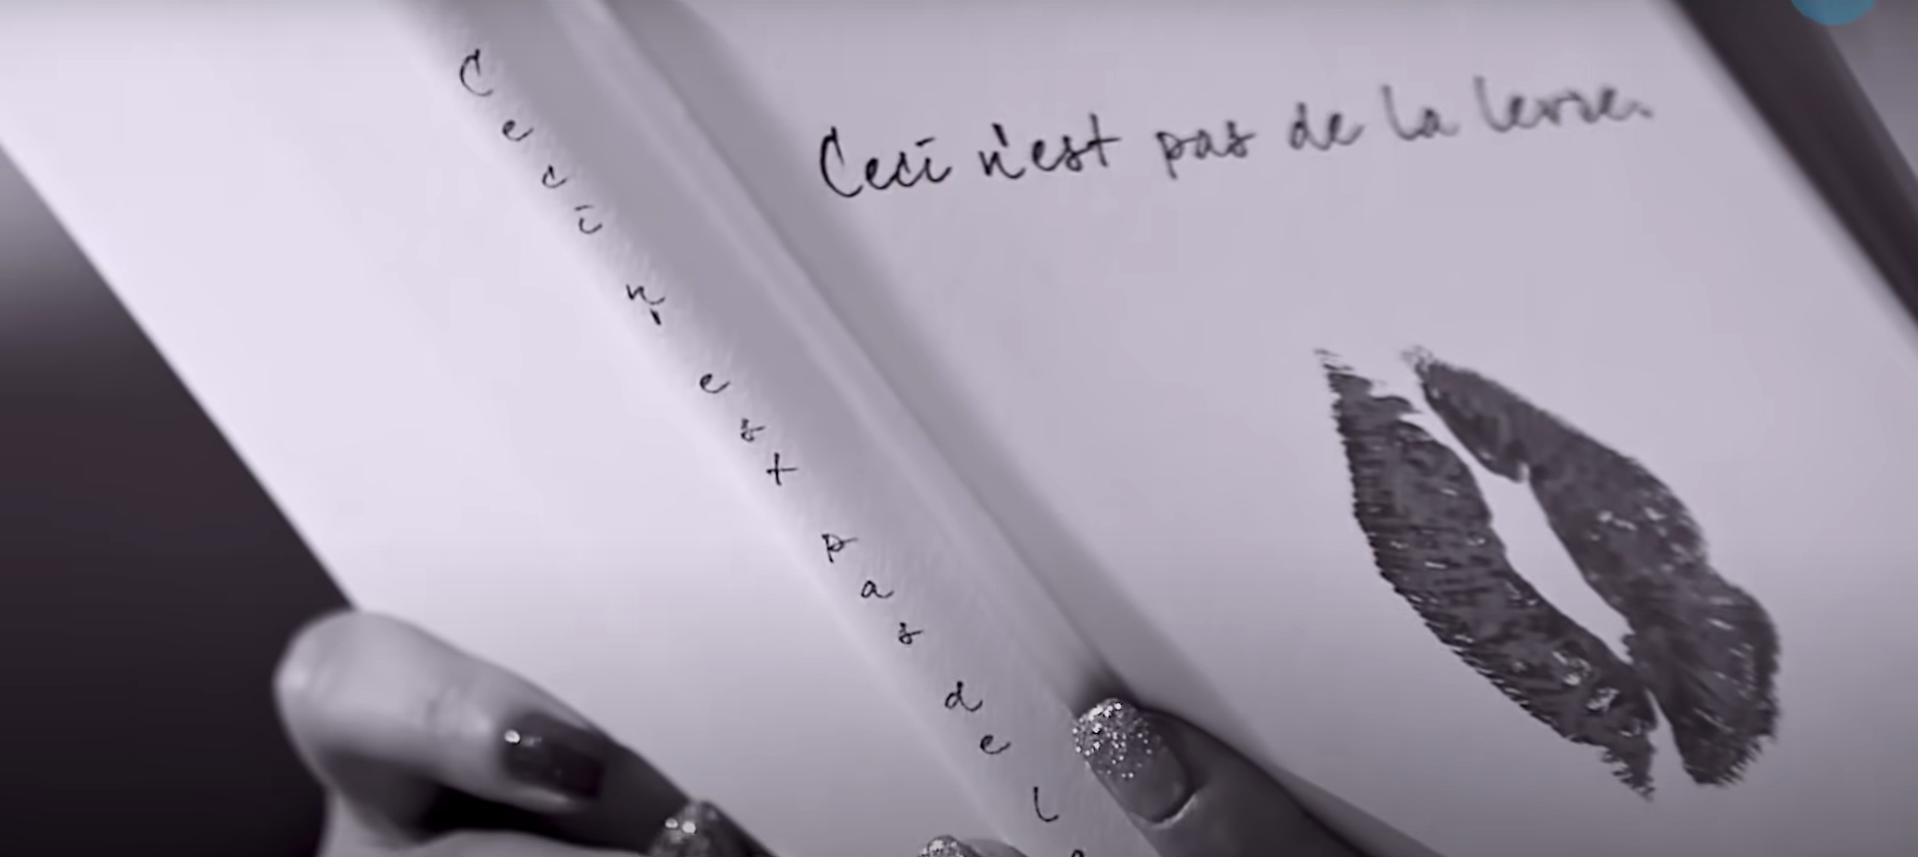 Ceci n'est pas de l
Ceci n'est pas de la levre.